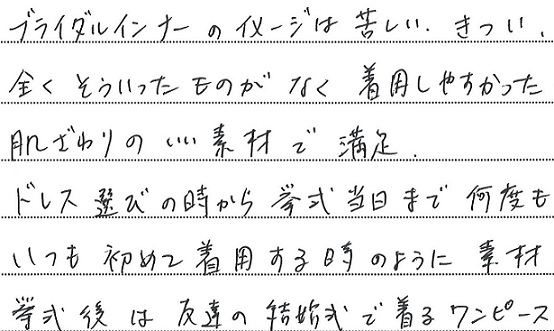 ブライダルインナーのイメージは苦しい、きつい、
全くそういったものがなく着用しやすかった
肌ざわりのいい素材で満足.
ドレス選びの時から挙式当日まで何度も
いつも初めて着用する時のように素材
挙式後は友達の結婚式で着るワンピース